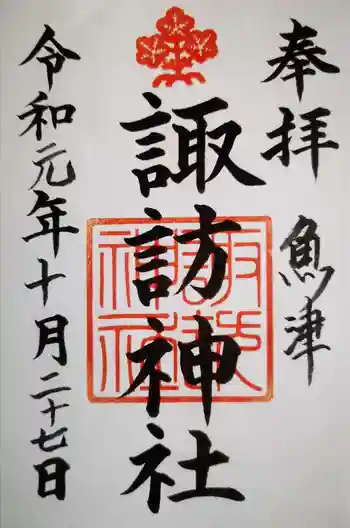 奉拝
魚津
諏訪神社
令和元年十月二十七日